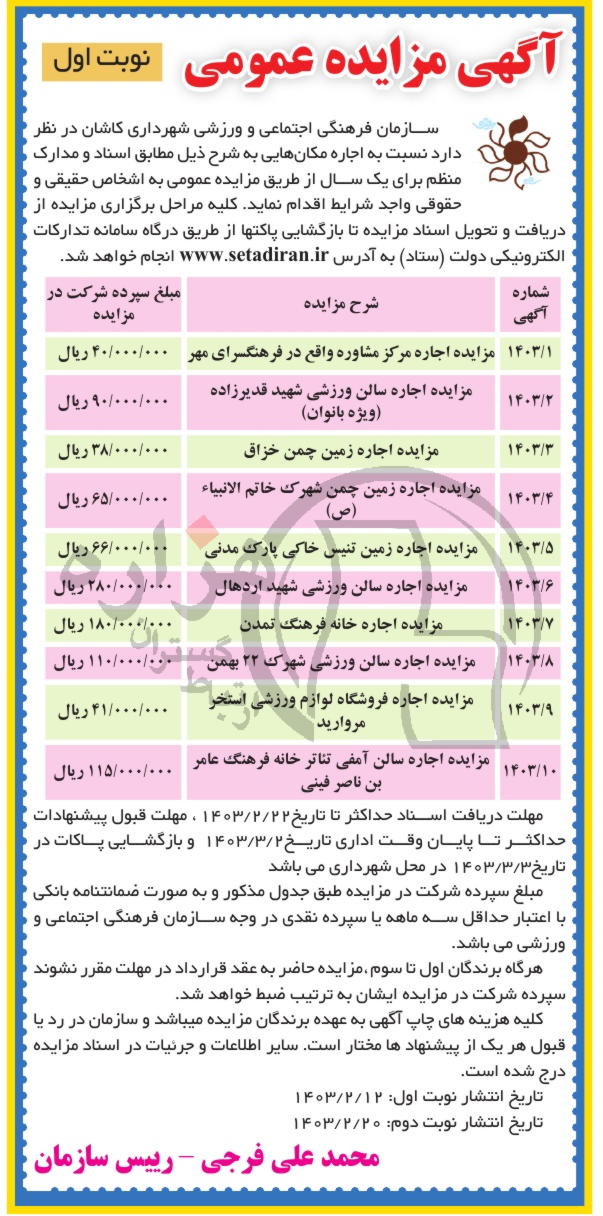 آگهی مزایده عمومی
نوبت اول
ســازمان فرهنگی اجتماعی و ورزشی شهرداری کاشان در نظر
دارد نسبت به اجاره مکان‌هایی به شرح ذیل مطابق اسناد و مدارک
منظم برای یک ســال از طریق مزایده عمومی به اشخاص حقیقی و
حقوقی واجد شرایط اقدام نماید. کلیه مراحل برگزاری مزایده از
دریافت و تحویل اسناد مزایده تا بازگشایی پاکتها از طریق درگاه سامانه تدارکات
الکترونیکی دولت (ستاد) به آدرس www.setadiran.ir انجام خواهد شد.
شماره آگهی شرح مزایده مبلغ سپرده شرکت در مزایده
۱۴۰۳/۱ مزایده اجاره مرکز مشاوره واقع در فرهنگسرای مهر ۴۰/۰۰۰/۰۰۰ ریال
۱۴۰۳/۲ مزایده اجاره سالن ورزشی شهید قدیرزاده (ویژه بانوان) ۹۰/۰۰۰/۰۰۰ ریال
۱۴۰۳/۳ مزایده اجاره زمین چمن خزاق ۳۸/۰۰۰/۰۰۰ ریال
۱۴۰۳/۴ مزایده اجاره زمین چمن شهرک خاتم الانبیاء (ص) ۶۵/۰۰۰/۰۰۰ ریال
۱۴۰۳/۵ مزایده اجاره زمین تنیس خاکی پارک مدنی ۶۶/۰۰۰/۰۰۰ ریال
۱۴۰۳/۶ مزایده اجاره سالن ورزشی شهید اردهال ۲۸۰/۰۰۰/۰۰۰ ریال
۱۴۰۳/۷ مزایده اجاره خانه فرهنگ تمدن ۱۸۰/۰۰۰/۰۰۰ ریال
۱۴۰۳/۸ مزایده اجاره سالن ورزشی شهرک ۲۲ بهمن ۱۱۰/۰۰۰/۰۰۰ ریال
۱۴۰۳/۹ مزایده اجاره فروشگاه لوازم ورزشی استخر مروارید ۴۱/۰۰۰/۰۰۰ ریال
۱۴۰۳/۱۰ مزایده اجاره سالن آمفی تئاتر خانه فرهنگ عامر بن ناصر فینی ۱۱۵/۰۰۰/۰۰۰ ریال
مهلت دریافت اســناد حداکثر تا تاریخ۱۴۰۳/۲/۲۲ ، مهلت قبول پیشنهادات
حداکثــر تــا پایــان وقــت اداری تاریــخ۱۴۰۳/۳/۲ و بازگشــایی پــاکات در
تاریخ۱۴۰۳/۳/۳ در محل شهرداری می باشد
مبلغ سپرده شرکت در مزایده طبق جدول مذکور و به صورت ضمانتنامه بانکی
با اعتبار حداقل ســه ماهه یا سپرده نقدی در وجه ســازمان فرهنگی اجتماعی و
ورزشی می باشد.
هرگاه برندگان اول تا سوم ،مزایده حاضر به عقد قرارداد در مهلت مقرر نشوند
سپرده شرکت در مزایده ایشان به ترتیب ضبط خواهد شد.
کلیه هزینه های چاپ آگهی به عهده برندگان مزایده میباشد و سازمان در رد یا
قبول هر یک از پیشنهاد ها مختار است. سایر اطلاعات و جرئیات در اسناد مزایده
درج شده است.
تاریخ انتشار نوبت اول: ۱۴۰۳/۲/۱۲
تاریخ انتشار نوبت دوم: ۱۴۰۳/۲/۲۰
محمد علی فرجی – رییس سازمان
هزاره
گستران
ارتباط